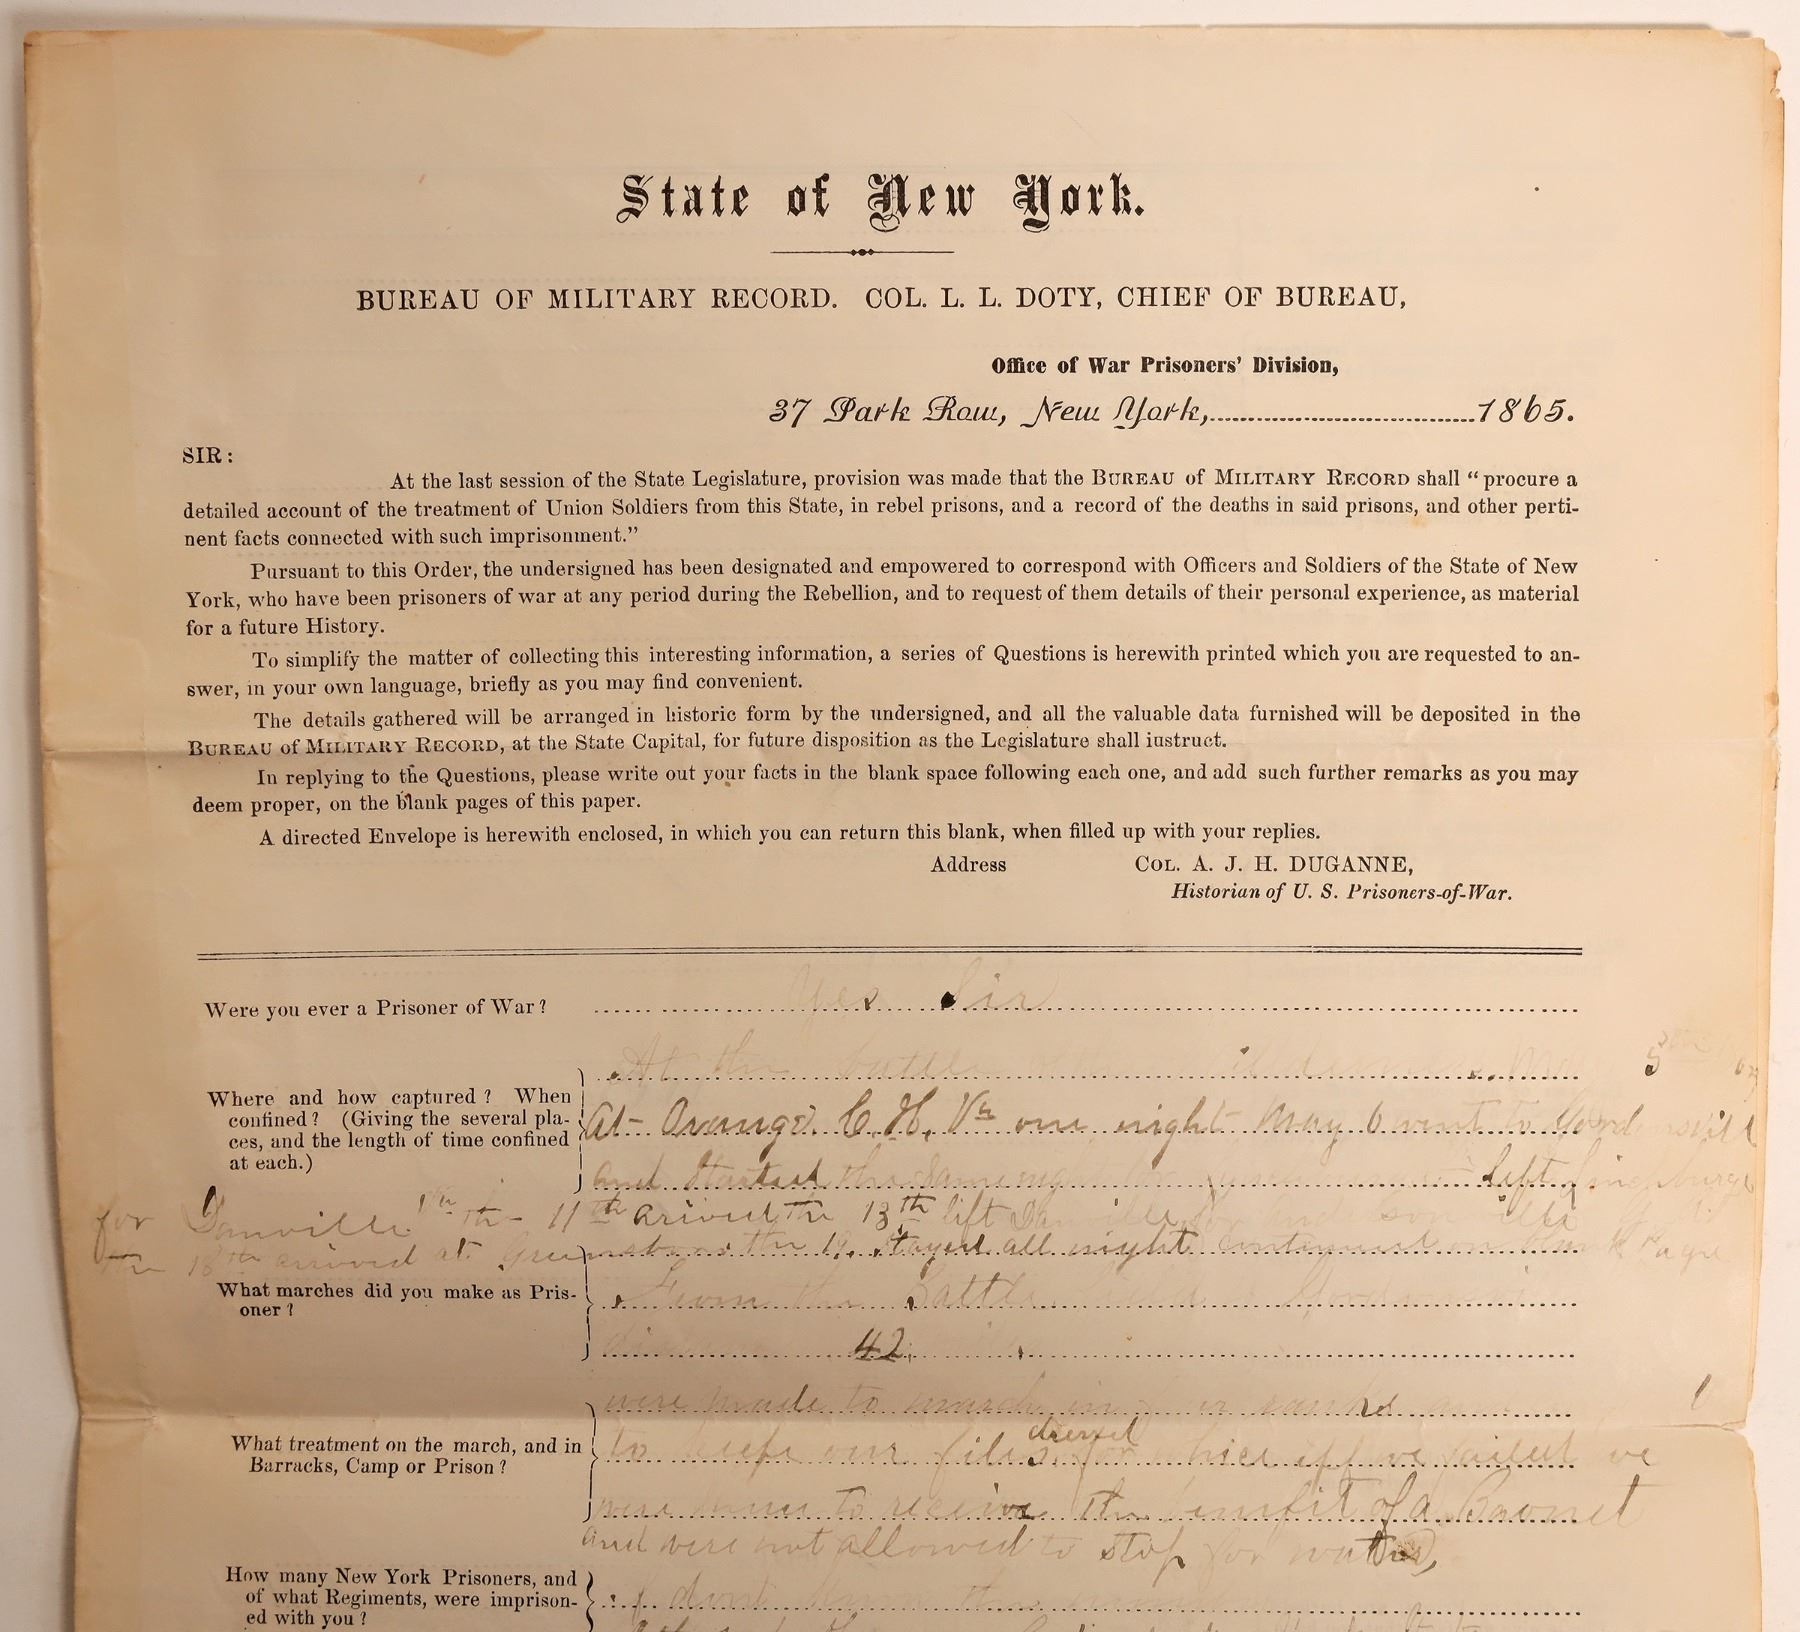 State of New York.
BUREAU OF MILITARY RECORD. COL. L. L. DOTY, CHIEF OF BUREAU,
Office of War Prisoners' Division,
37 Park Row, New York,..............................1865.
SIR:
At the last session of the State Legislature, provision was made that the BUREAU of MILITARY RECORD shall "procure a
detailed account of the treatment of Union Soldiers from this State, in rebel prisons, and a record of the deaths in said prisons, and other perti-
nent facts connected with such imprisonment."
Pursuant to this Order, the undersigned has been designated and empowered to correspond with Officers and Soldiers of the State of New
York, who have been prisoners of war at any period during the Rebellion, and to request of them details of their personal experience, as material
for a future History.
To simplify the matter of collecting this interesting information, a series of Questions is herewith printed which you are requested to an-
swer, in your own language, briefly as you may find convenient.
The details gathered will be arranged in historic form by the undersigned, and all the valuable data furnished will be deposited in the
BUREAU of MILITARY RECORD, at the State Capital, for future disposition as the Legislature shall instruct.
In replying to the Questions, please write out your facts in the blank space following each one, and add such further remarks as you may
deem proper, on the blank pages of this paper.
A directed Envelope is herewith enclosed, in which you can return this blank, when filled up with your replies.
Address COL. A. J. H. DUGANNE,
Historian of U. S. Prisoners-of-War.
Were you ever a Prisoner of War? Yes Sir
Where and how captured? When
confined? (Giving the several pla-
ces, and the length of time confined
at each.)
At the battle May 5
At Orange C. H. Va one night May 6 went to
and started the same night left Linchburge
for Danville the 11th arived the 13th left Danville for
the 18th arrived at Greensboro the 19. Stayed all night continued on blank Page
What marches did you make as Pris-
oner?
From the Battle
42
What treatment on the march, and in
Barracks, Camp or Prison?
were made to march in ranks
to keep our files dressed for if we failed we
were to receive the benifit of a Baonet
and were not allowed to stop for water,
How many New York Prisoners, and
of what Regiments, were imprison-
ed with you?
I dont know the